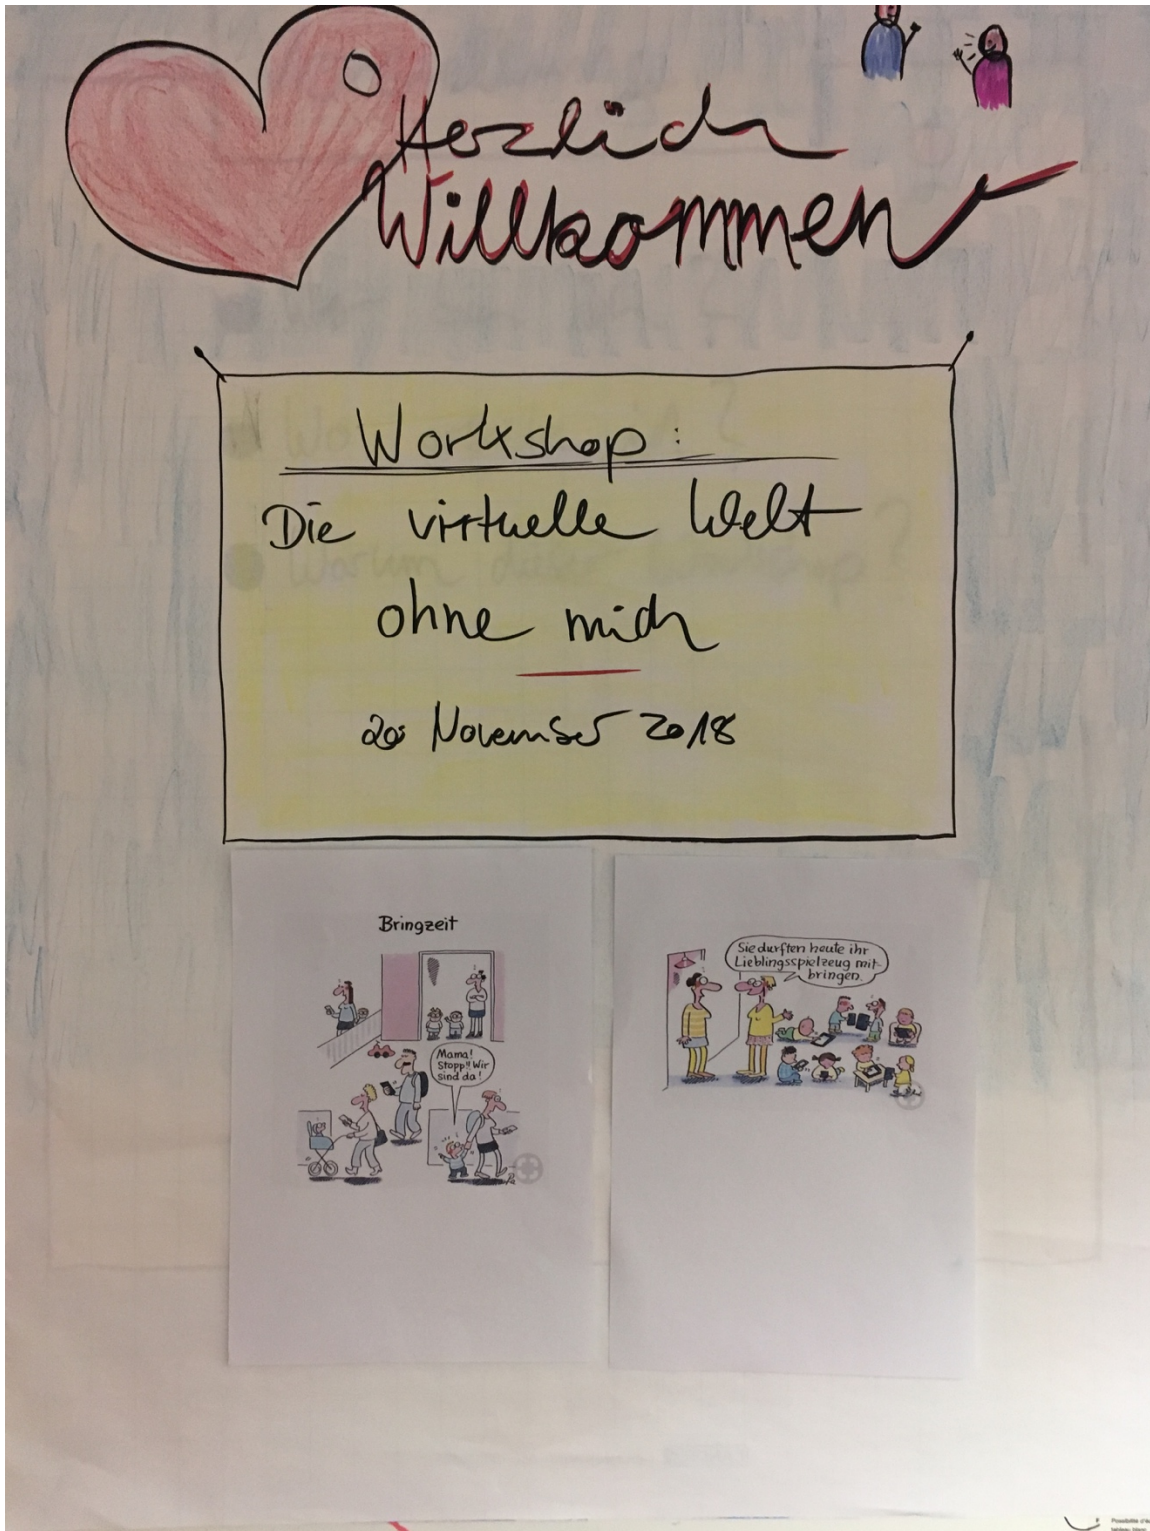 Herzlich
Willkommen
Workshop:
Die virtuelle Welt
ohne mich
20. November 2018
Bringzeit
Mama!
Stopp!! Wir
sind da!
Sie durften heute ihr
Lieblingsspielzeug mit-
bringen.